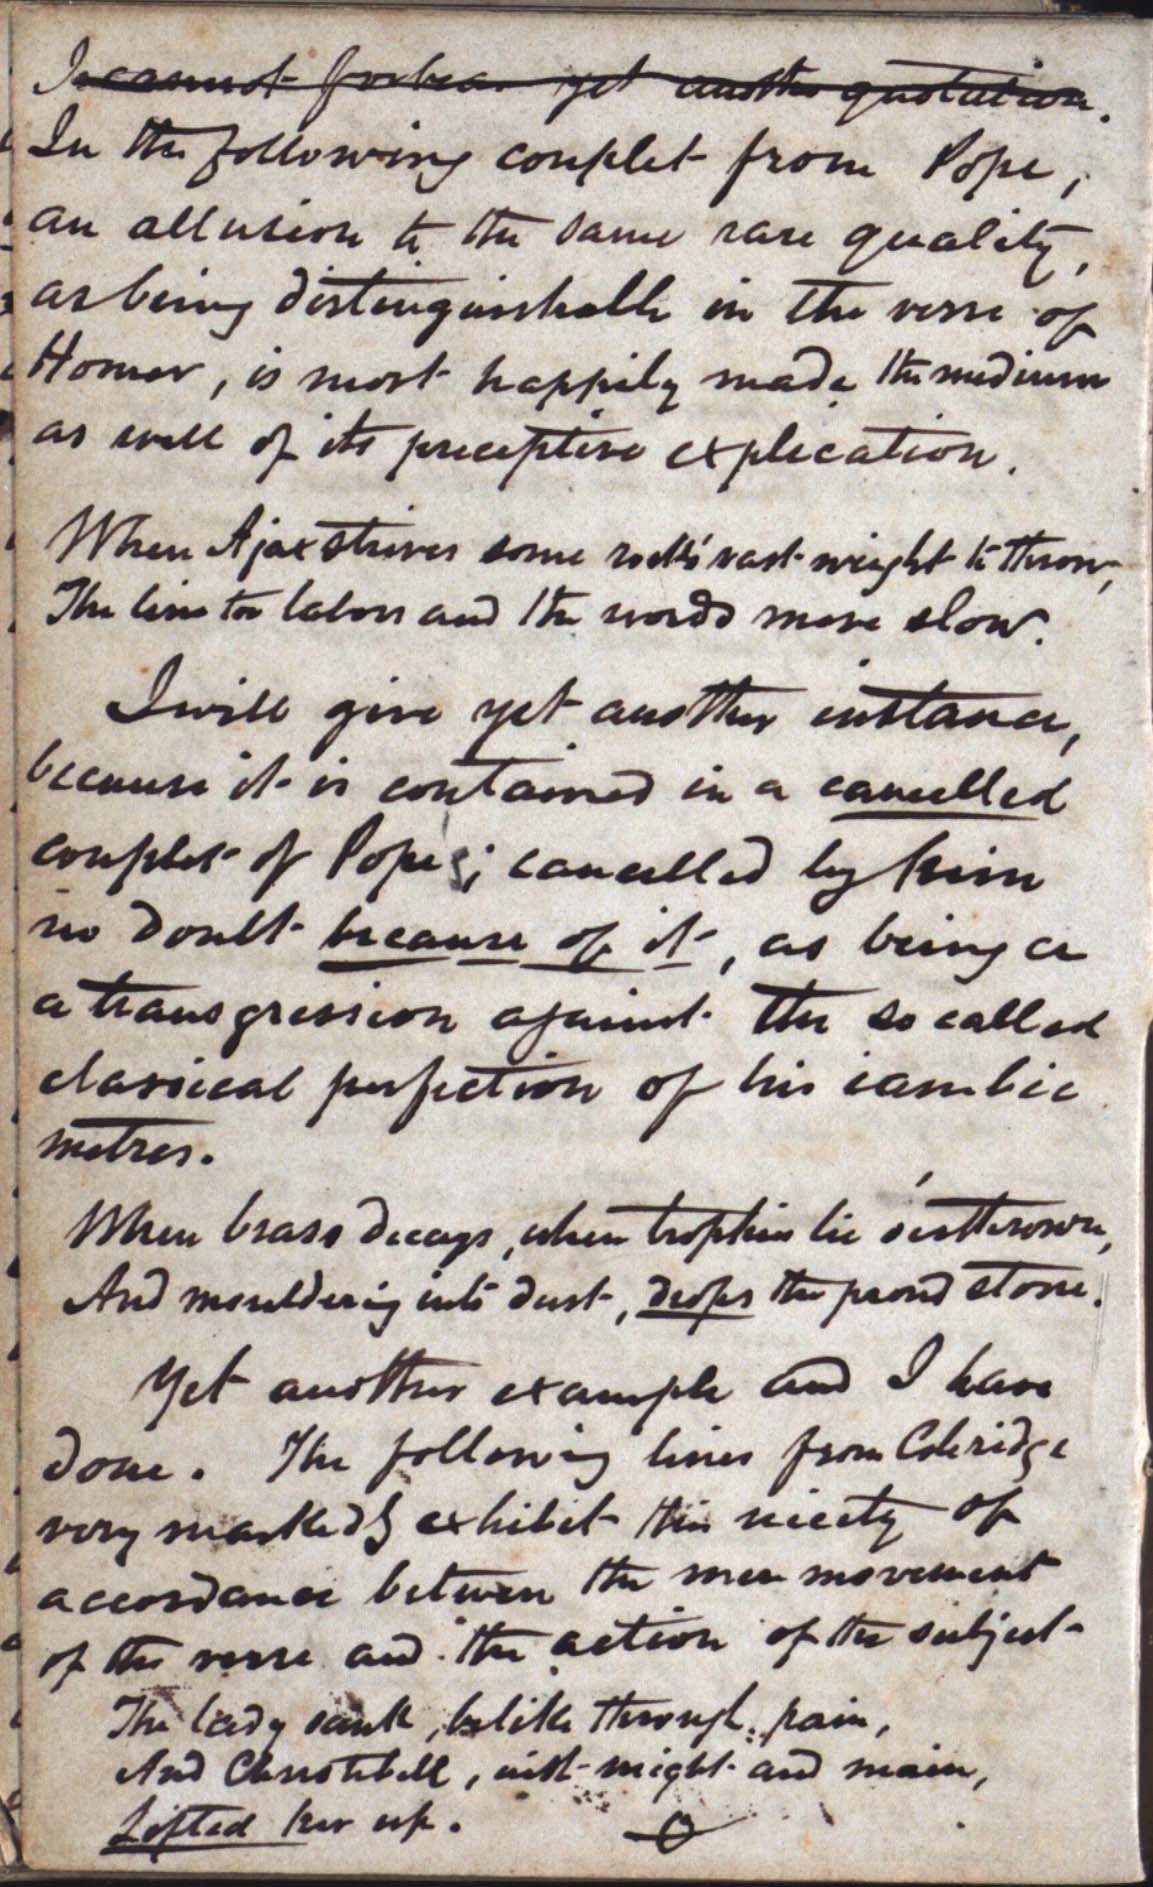 I cannot forbear yet another quotation.
In the following couplet from Pope,
an allusion to the same rare quality,
as being distinguishable in the verse of
Homer, is most happily made the medium
as well of its preceptive explication.
When Ajax strives some rocks' vast weight to throw,
The line too labors and the words move slow.
I will give yet another instance,
because it is contained in a cancelled
couplet of Pope's; cancelled by him
no doubt because of it, as being a
a transgression against the so called
classical perfection of his iambic
metres.
When brass decays, when trophies lie o'erthrown,
And mouldering into dust, drops the proud stone.
Yet another example and I have
done. The following lines from Coleridge
very markedly exhibit this nicety of
accordance between the mere movement
of the verse and the action of the subject
The lady sank, belike through pain,
And Christobell, with might and main,
Lifted her up.